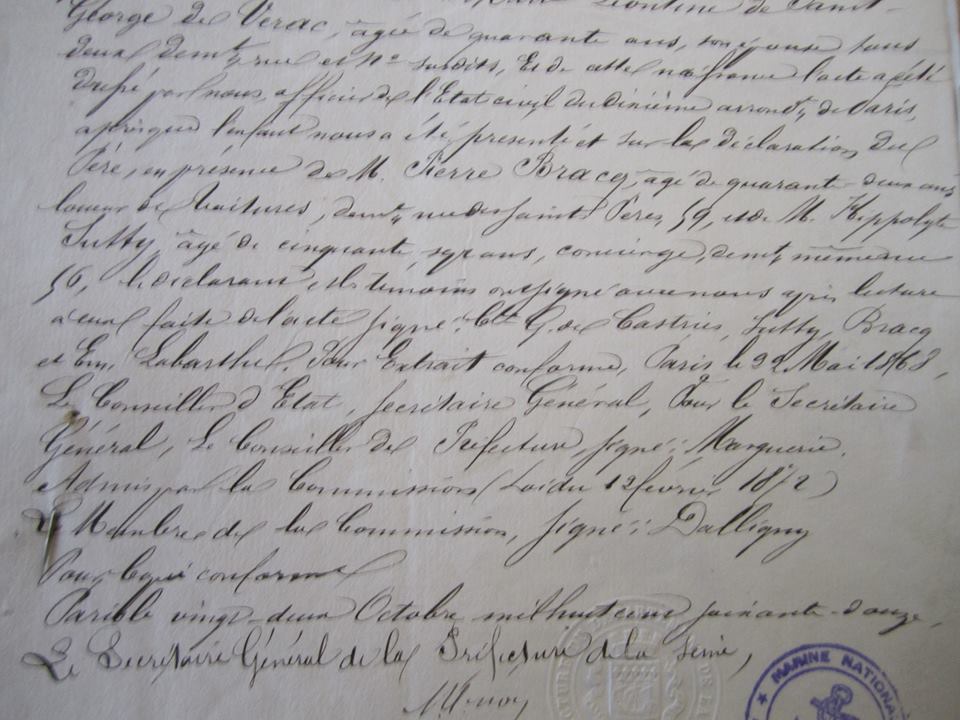 Léontine de Saint-
George de Vérac, âgée de quarante ans, son épouse tous
deux demt. rue et No. susdits, Et de cette naissance l'acte a été
dressé par nous, officier de l'Etat civil du dixième arrondt. de Paris,
après que l'enfant nous a été présenté et sur la déclaration du
Père, en présence de M. Pierre Bracq, âgé de quarante-deux ans
loueur de Voitures, demt. rue des Saints Pères, 59, et de M. Hippolyte
âgé de cinquante sept ans, concierge, demt. même rue
56, le déclarant et les témoins ont signé avec nous après lecture
à eux faite de l'acte signé: Cte G. de Castries, Bracq
et Em. Labarthe. Pour Extrait conforme, Paris le 22 Mai
Le Conseiller d'Etat, Secrétaire Général, Pour le Secrétaire
Général, Le Conseiller de Préfecture, signé: Marguerie.
Admis par la Commission (Loi du 12 février 1872)
Le Membre de la Commission, signé: Dalligny
Pour Copie conforme
Paris le vingt-deux Octobre mil huit cent soixante-douze,
Le Secrétaire Général de la Préfecture de la Seine,
MARINE NATIONAL